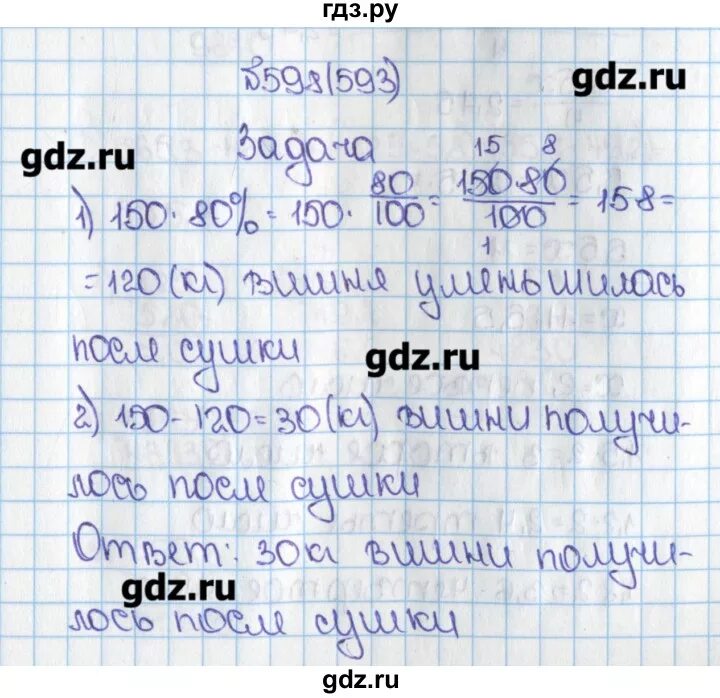 гдз.ру
№598(593)
gdz.ru
Задача
gdz.ru
15 8
1) 150 · 80% = 150 · 80/100 = 150·80/100 = 158 =
1
= 120 (кг) вишня уменьшилась
после сушки
gdz.ru
2) 150 - 120 = 30 (кг) вишни получи-
лось после сушки
Ответ: 30 кг вишни получи-
gdz.ru
лось после сушки
gdz.ru